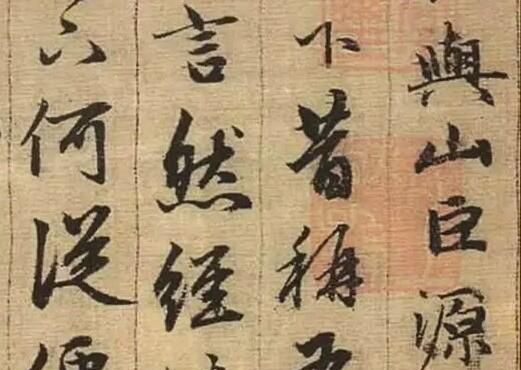 與山巨源
下昔稱
言然經
下何從